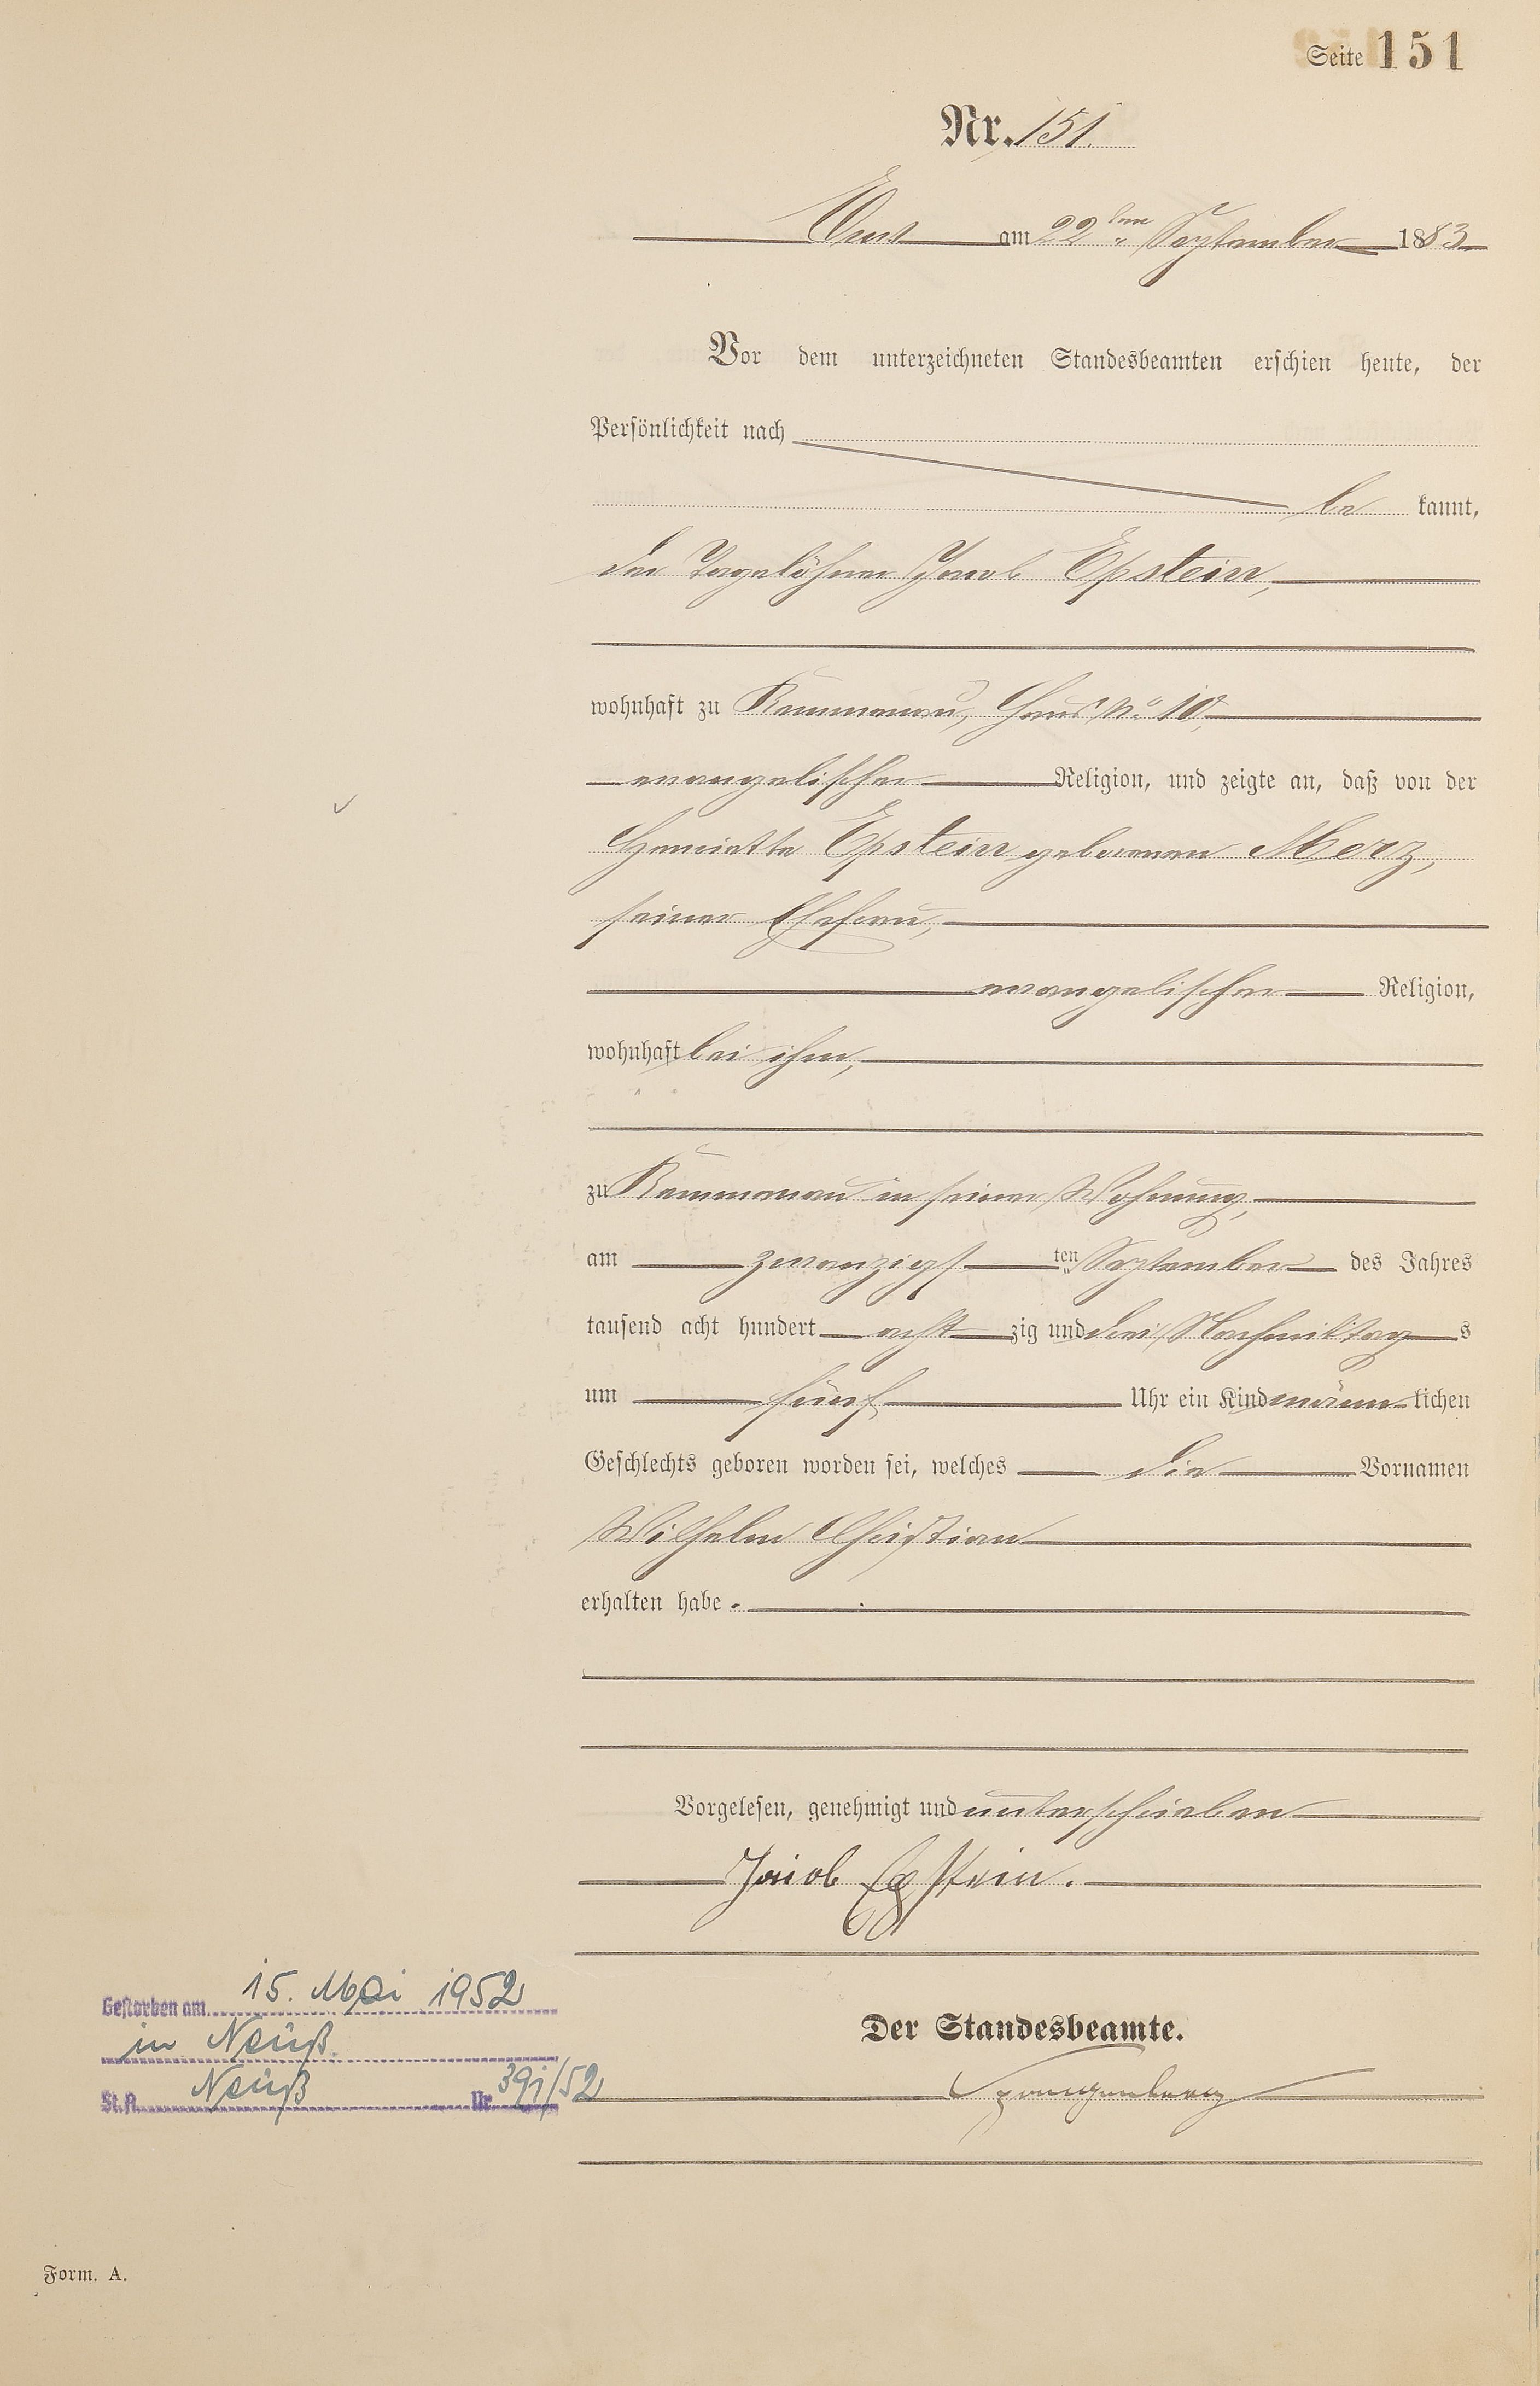 Seite 151
Nr. 151.
Ems am 22ten September 1883
Vor dem unterzeichneten Standesbeamten erschien heute, der
Persönlichkeit nach
be kannt,
der Tagelöhner Jacob Epstein,
wohnhaft zu Kemmenau, Haus No 10,
evangelischer Religion, und zeigte an, daß von der
Henriette Epstein geborenen Merz,
seiner Ehefrau,
evangelischer Religion,
wohnhaft bei ihm,
zu Kemmenau in seiner Wohnung,
am zwanzigst ten September des Jahres
tausend acht hundert acht zig und drei Nachmittag s
um fünf Uhr ein Kind männ lichen
Geschlechts geboren worden sei, welches die Vornamen
Wilhelm Christian
erhalten habe.
Vorgelesen, genehmigt und unterschrieben
Jacob Epstein.
Gestorben am 15. Mai 1952
in Neuß.
St. A. Neuß Nr. 391/52
Der Standesbeamte.
Spangenberg
Form. A.